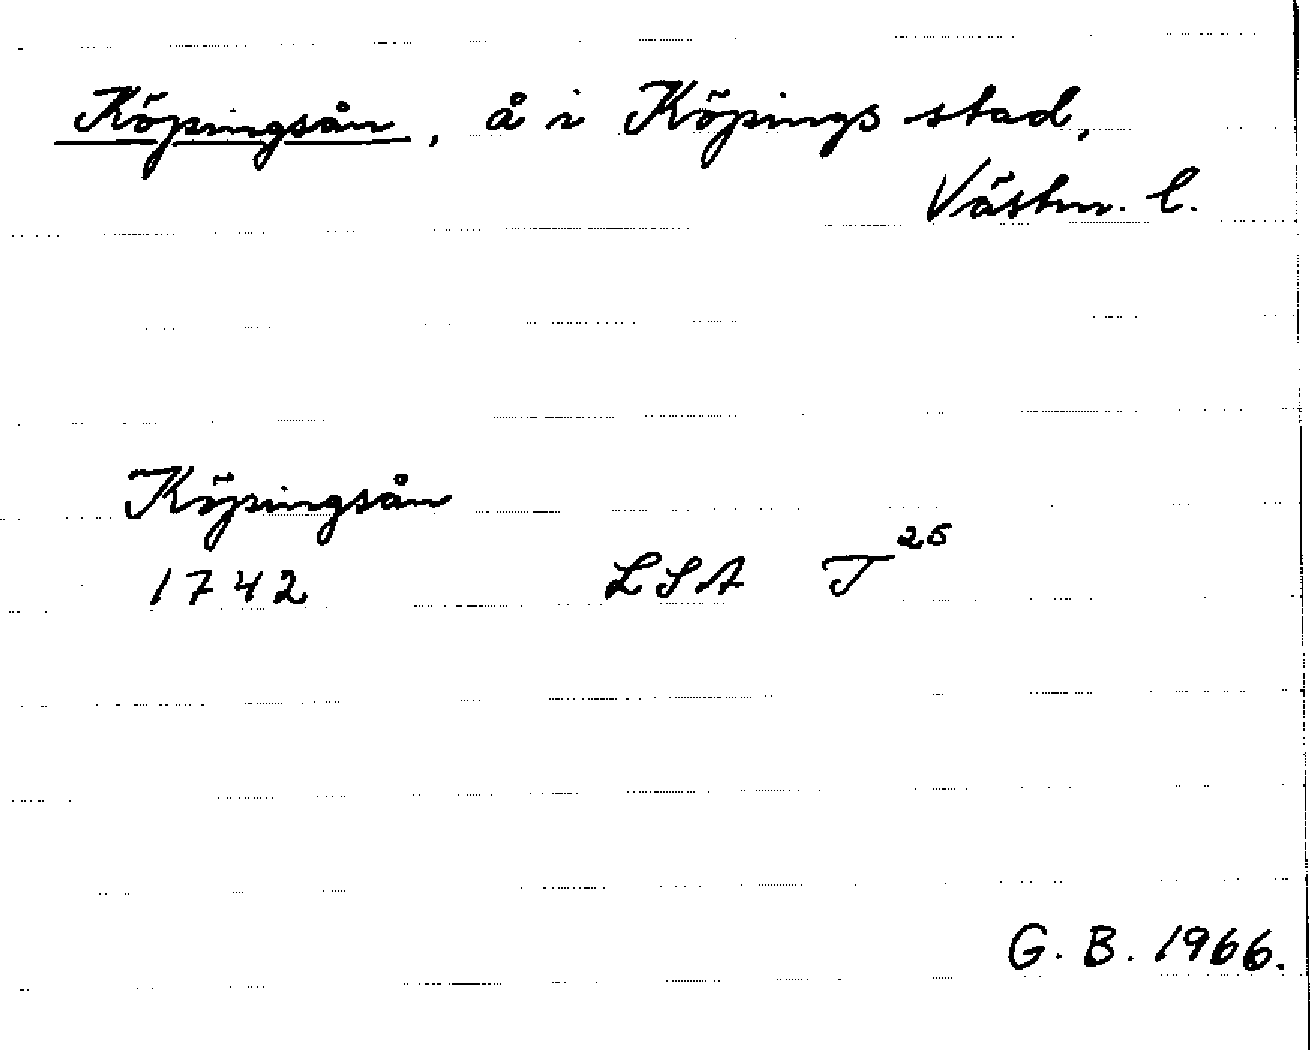 Köpingsån, å i Köpings stad,
Västm. l.
Köpingsån
1742 LSA T²⁵
G. B. 1966.